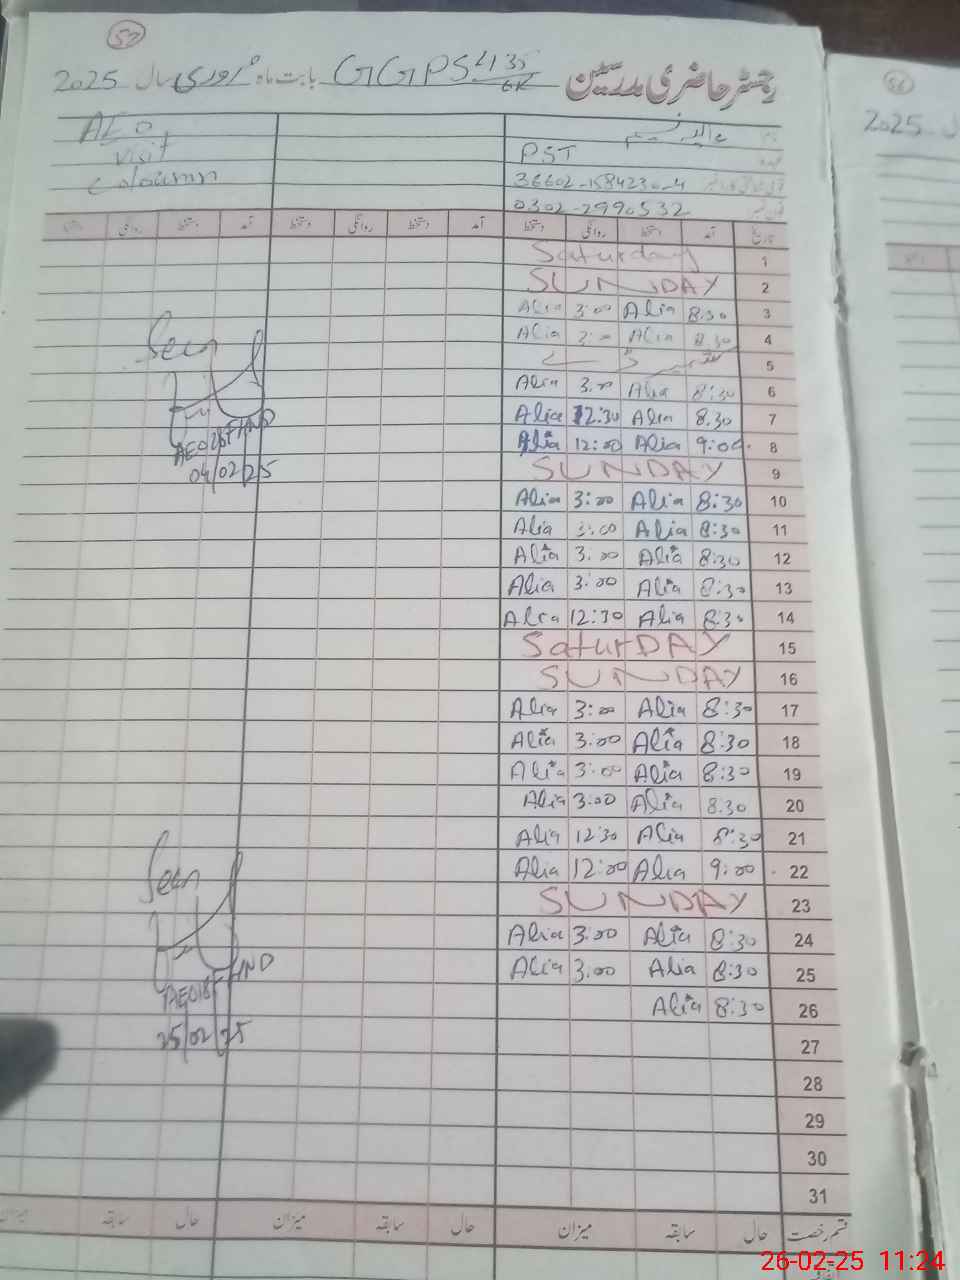 52
رجسٹر حاضری مدرسین GGPS 435 GK بابت ماہ فروری سال 2025
AEO
visit
coloumn
PST
36602-1584230-4
0302-2990532
تاریخ آمد دستخط روانگی دستخط آمد دستخط روانگی دستخط آمد دستخط روانگی
1 Saturday
2 SUNDAY
3 8:30 Alia 3:00 Alia
4 8.30 Alia 3:00 Alia
5
6 8:30 Alia 3.00 Alia
7 8.30 Alia 12:30 Alia
8 9:00 Alia 12:00 Alia
9 SUNDAY
10 8:30 Alia 3:00 Alia
11 8:30 Alia 3:00 Alia
12 8:30 Alia 3:00 Alia
13 8:30 Alia 3:00 Alia
14 8:30 Alia 12:30 Alia
15 SaturDAY
16 SUNDAY
17 8:30 Alia 3:00 Alia
18 8:30 Alia 3:00 Alia
19 8:30 Alia 3:00 Alia
20 8.30 Alia 3:00 Alia
21 8:30 Alia 12:30 Alia
22 9:00 Alia 12:00 Alia
23 SUNDAY
24 8:30 Alia 3:00 Alia
25 8:30 Alia 3:00 Alia
26 8:30 Alia
27
28
29
30
31
Seen
04/02/25
Seen
25/02/25
قسم رخصت حال سابقہ میزان حال سابقہ میزان حال سابقہ میزان
2025
26-02-25 11:24